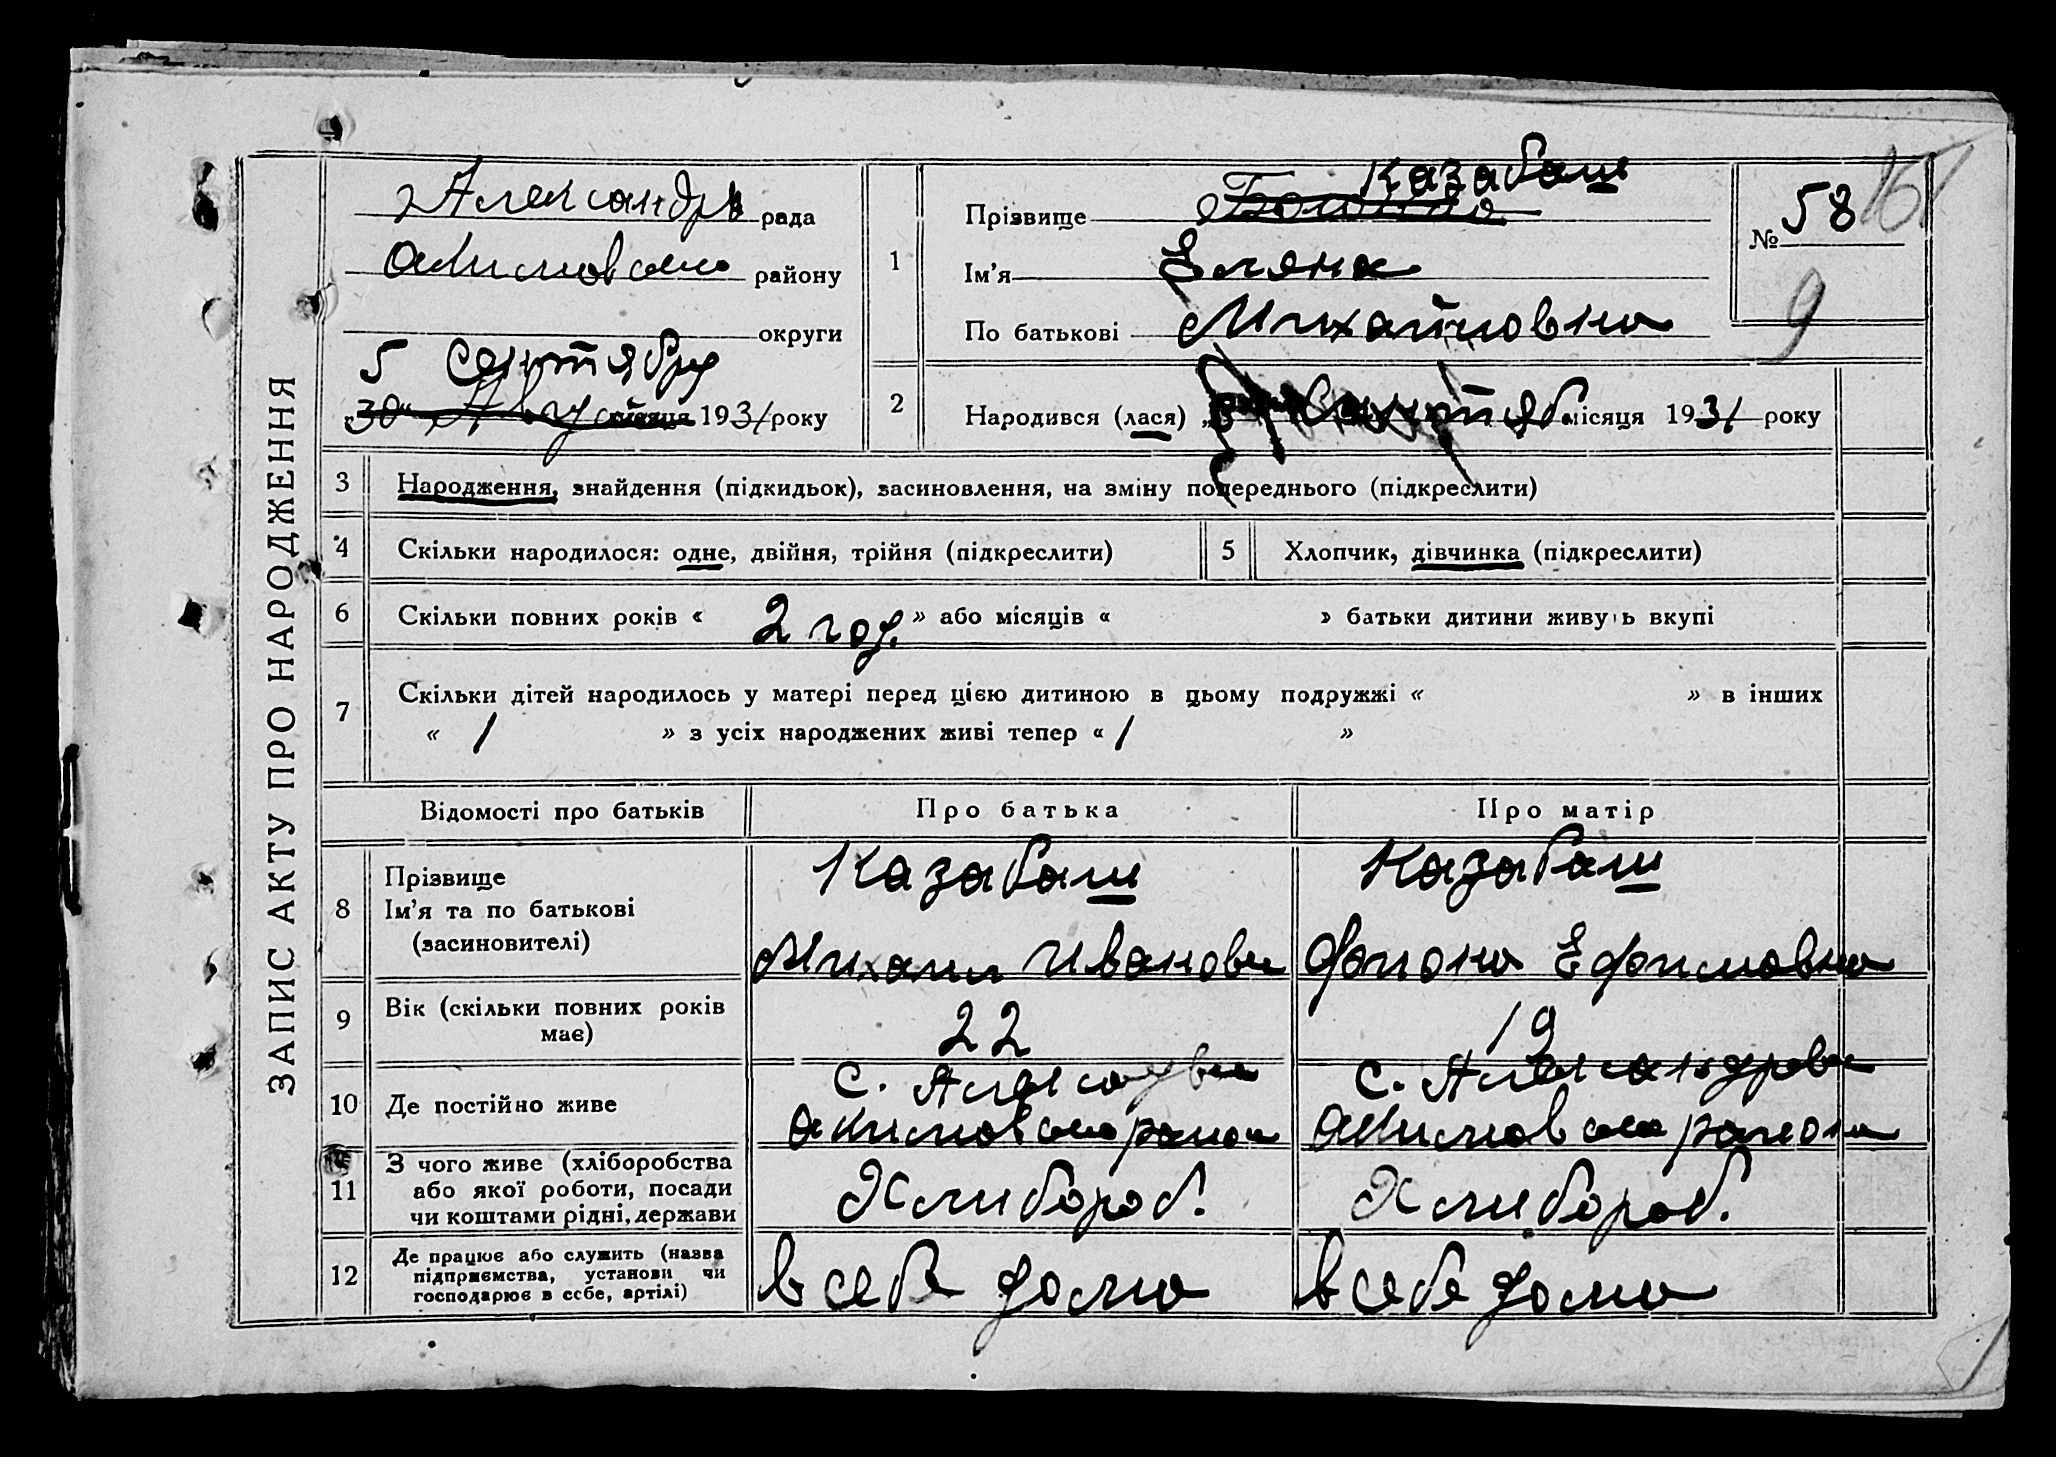 ЗАПИС АКТУ ПРО НАРОДЖЕННЯ
Александр рада
Акимовско району
округи
5 Сентября
„30“ Августа місяця 1931 року
1
Казабаш
Прізвище
Ім'я Еляна
По батькові Михайловна
№ 58
9
2 Народився (лася) Сентяб місяця 1931 року
3 Народження, знайдення (підкидьок), засиновлення, на зміну попереднього (підкреслити)
4 Скільки народилося: одне, двійня, трійня (підкреслити)
5 Хлопчик, дівчинка (підкреслити)
6 Скільки повних років « 2 год. » або місяців « » батьки дитини живуть вкупі
7 Скільки дітей народилось у матері перед цією дитиною в цьому подружжі « » в інших
« 1 » з усіх народжених живі тепер « 1 »
Відомості про батьків Про батька Про матір
8 Прізвище
Ім'я та по батькові
(засиновителі)
Казабаш
Михаил Иванови
Казабаш
Ефимовна
9 Вік (скільки повних років
має)
22
19
10 Де постійно живе
с. Александров
Акимовско района
с. Александровк
Акимовско района
11 З чого живе (хліборобства
або якої роботи, посади
чи коштами рідні, держави
Хлибороб.
Хлибороб.
12 Де працює або служить (назва
підприємства, установи чи
господарює в себе, артілі)
в себе дома
в себе дома